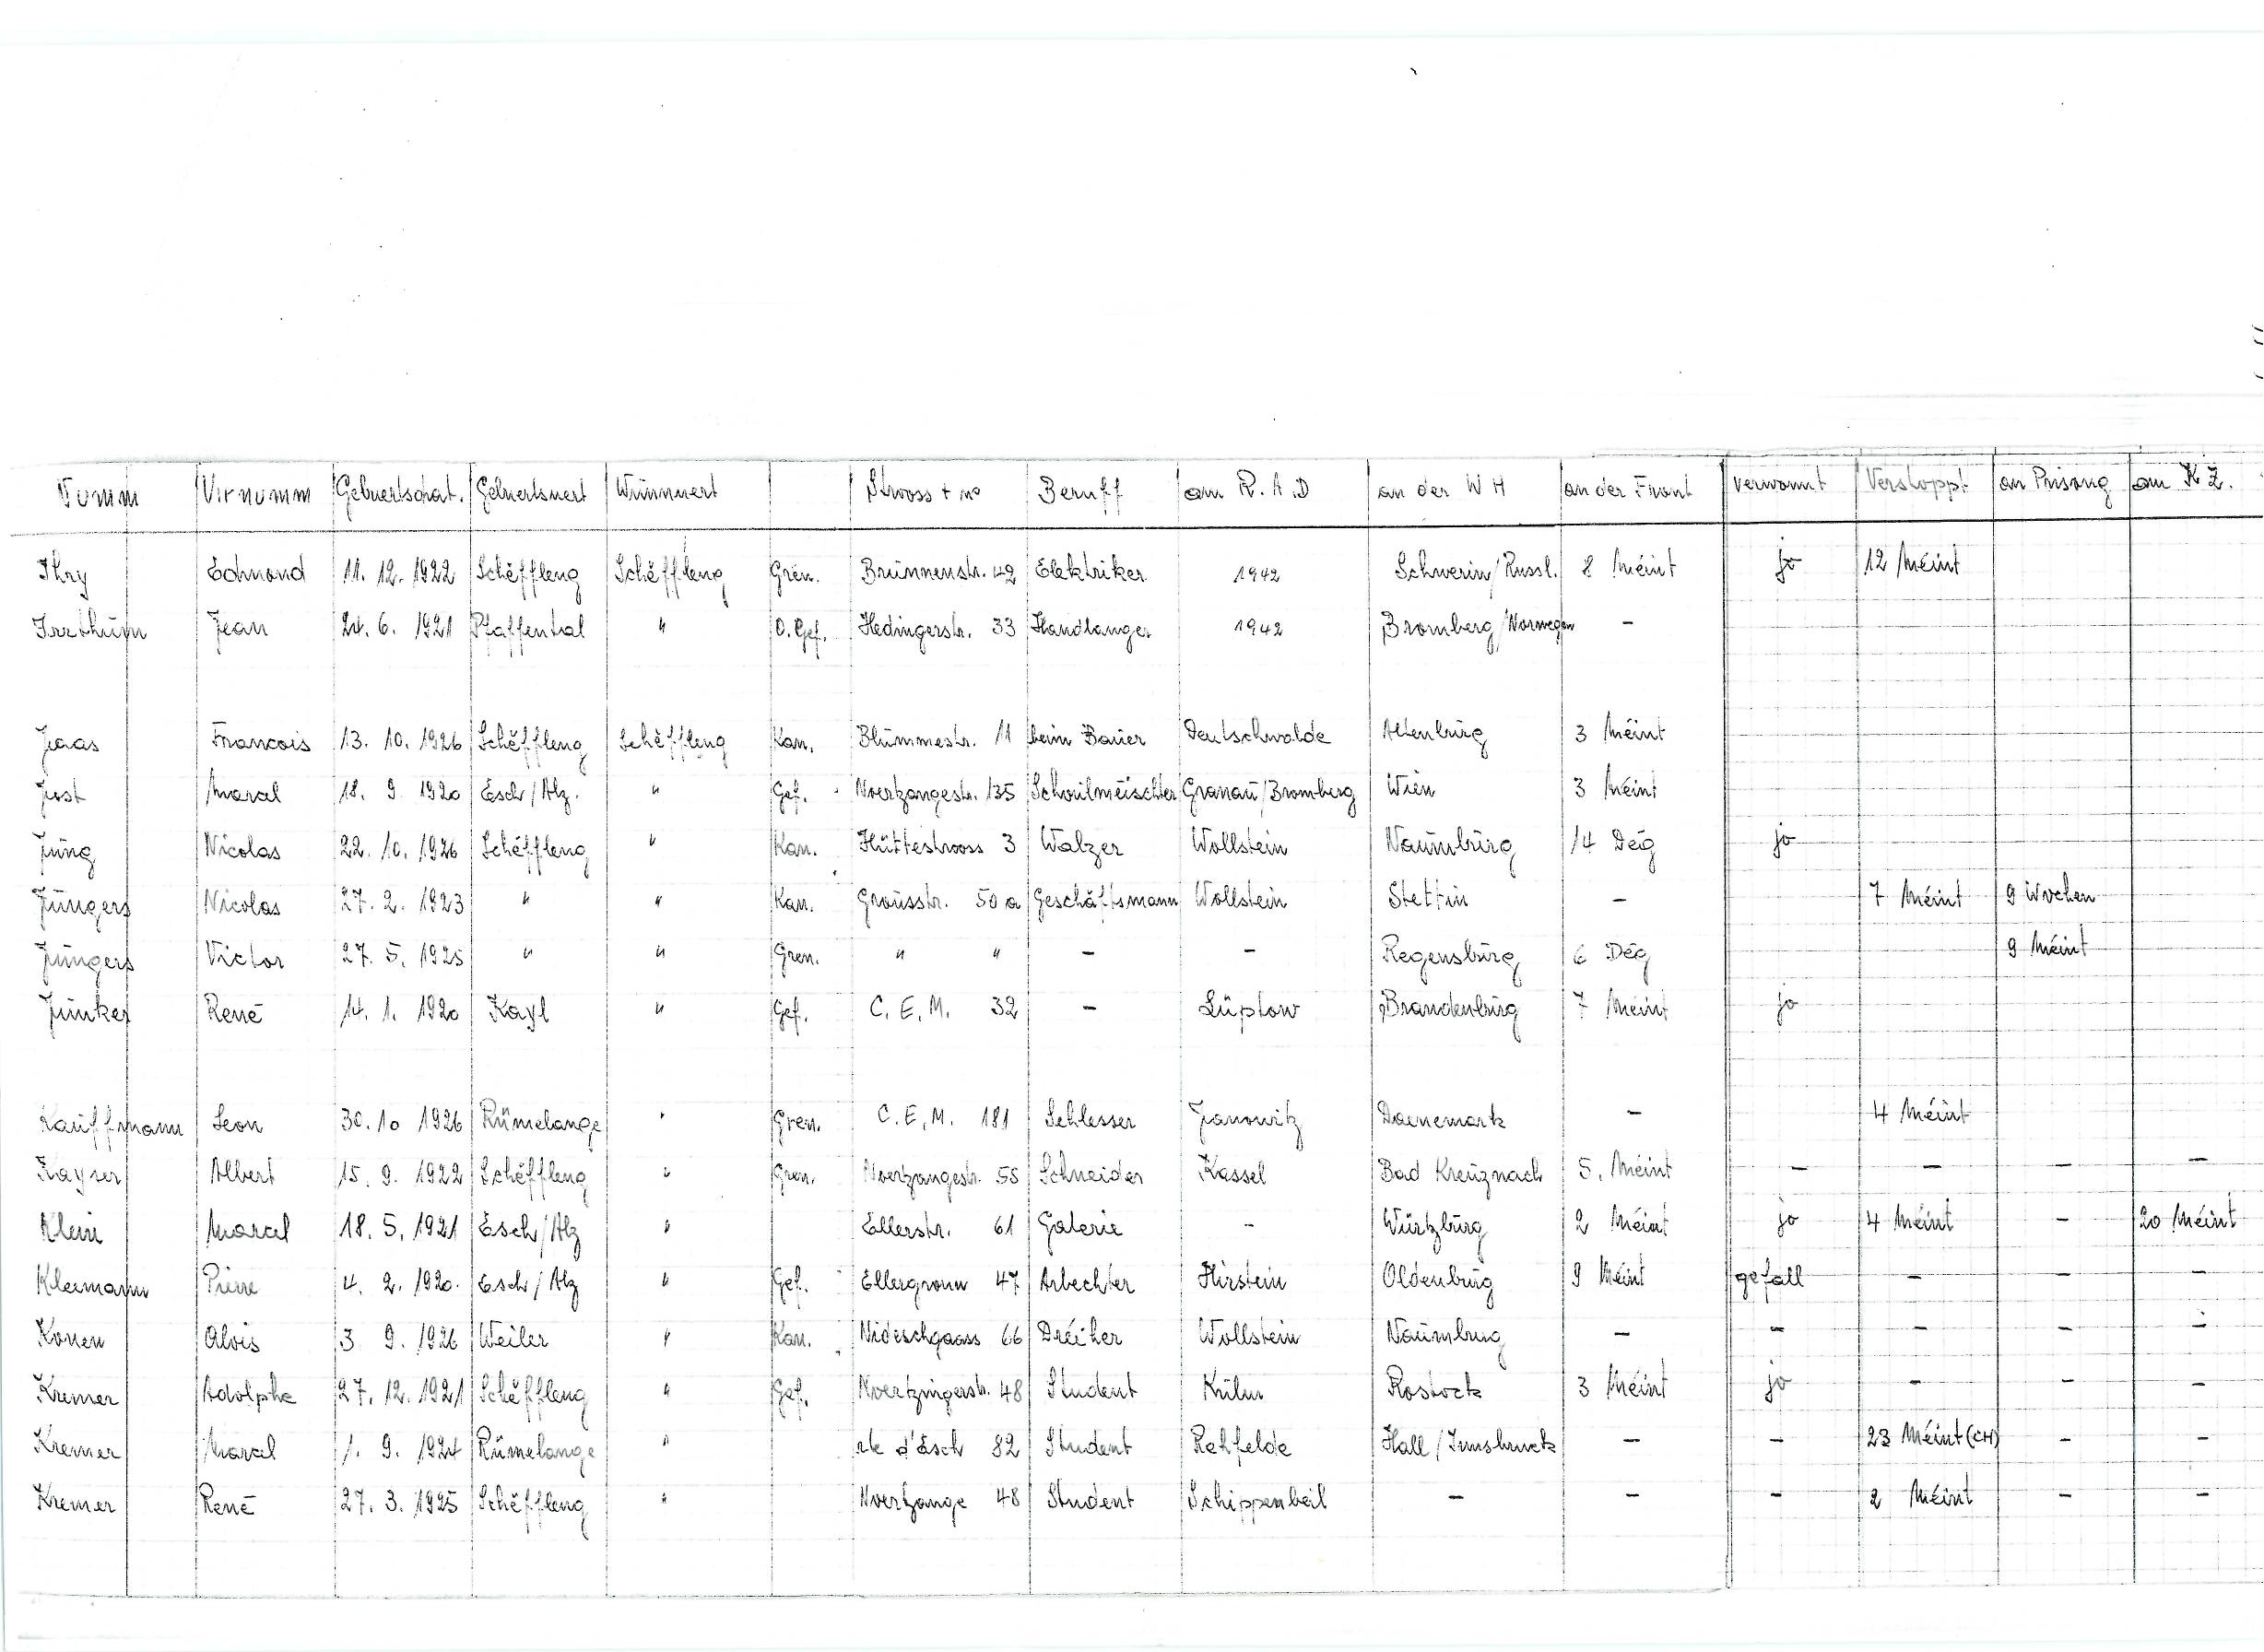 Numm Virnumm Gebuertsdat. Gebuertsuert Wunnuert Strooss + no Beruff am R.A.D an der WH an der Front verwonnt Verstoppt an Prisong am KZ.
Ihry Edmond 11. 12. 1922 Schëffleng Schëffleng Gren. Brunnenstr. 42 Elektriker 1942 Schwerin/Russl. 8 Méint jo 12 Méint
Irrthum Jean 24. 6. 1921 Pfaffental " O. Gef. Hedingerstr. 33 Handlanger 1942 Bromberg/Norwegen -
Jaas Francois 13. 10. 1926 Schëffleng Schëffleng Kan. Blummestr. 11 beim Bauer Deutschwalde Altenburg 3 Méint
Jost Marcel 18. 9 1920 Esch/Alz. " Gef. Noertzangestr. 135 Schoulméischter Granau/Bromberg Wien 3 Méint
Jung Nicolas 22. 10. 1926 Schëffleng " Kan. Hüttestrooss 3 Walzer Wollstein Naumburg 14 Deg jo
Jungers Nicolas 27. 2. 1923 " " Kan. Grousstr. 50 a Geschäftsmann Wollstein Stettin - 7 Méint 9 Wochen
Jungers Victor 27. 5. 1925 " " Gren. " " - - Regensburg 6 Deg 9 Méint
Junker René 14. 1. 1920 Kayl " Gef. C. E. M. 32 - Lüptow Brandenburg 7 Méint jo
Kauffmann Leon 30. 10 1926 Rümelange " Gren. C. E. M. 181 Schlesser Janowitz Daenemark - 4 Méint
Kayser Albert 15. 9. 1922 Schëffleng " Gren. Noertzangestr. 55 Schneider Kassel Bad Kreuznach 5. Méint - - - -
Klein Marcel 18. 5. 1921 Esch/Alz " Ellerstr. 61 Galerie - Würzburg 2 Méint jo 4 Méint - 20 Méint
Kleimann Pierre 4. 2. 1920. Esch/Alz " Gef. Ellergronn 47 Arbechter Hirstein Oldenburg 9 Méint gefall - - -
Konen Alois 3 9. 1926 Weiler " Kan. Nideschgaass 66 Dréiher Wollstein Naumbug - - - - -
Kremer Adolphe 27. 12. 1921 Schëffleng " Gef. Noertzingerstr. 48 Student Kulm Rostock 3 Méint jo - - -
Kremer Marcel 1. 9. 1924 Rümelange " rte d'Esch 82 Student Rehfelde Hall/Innsbruck - - 23 Méint (CH) - -
Kremer René 27. 3. 1925 Schëffleng " Noertzange 48 Student Schippenbeil - - - 2 Méint - -